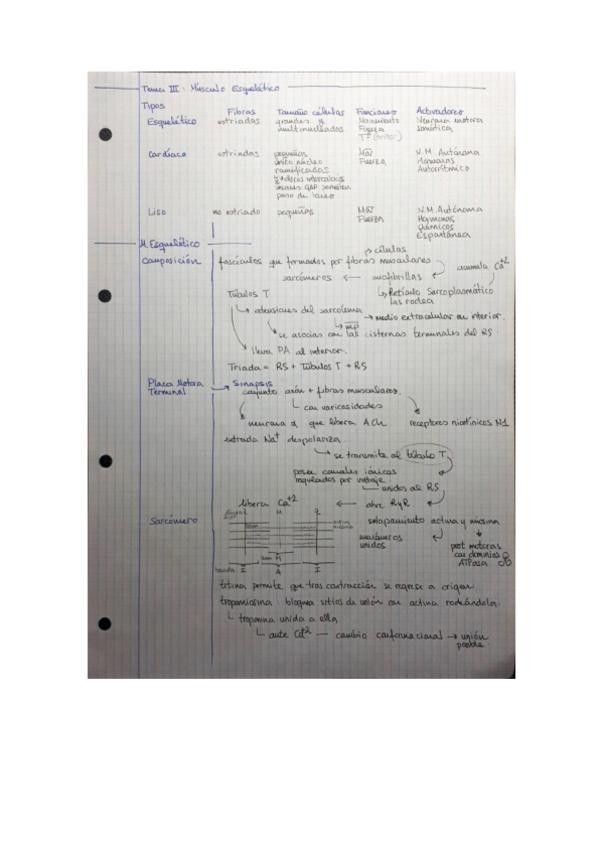 Tema III: Músculo Esquelético
Tipos
Fibras Tamaño células Funciones Activadores
Esquelético estriadas grandes y multinucleadas Movimiento Fuerza Tª Neurona motora somática
Cardíaco estriadas pequeñas único núcleo ramificadas discos intercalares uniones GAP permiten paso de iones Mov Fuerza N.M. Autónoma Hormonas Autorrítmico
Liso no estriado pequeñas Mov Fuerza N.M. Autónoma Hormonas Químicos Espontánea
M. Esquelético
células
Composición fascículos que formados por fibras musculares
acumula Ca+2
sarcómeros ← miofibrillas
Retículo Sarcoplasmático
las rodea
Túbulos T
extensiones del sarcolema → medio extracelular en interior.
mp
se asocias con las cisternas terminales del RS.
lleva PA al interior.
Triada = RS + Túbulos T + RS
Placa Motora Terminal → Sinapsis
conjunto axón + fibras musculares.
con varicosidades
neurona α que libera ACh receptores nicotínicos N1
entrada Na+ despolariza.
se transmite al túbulo T
posee canales iónicos
regulados por voltaje
unidos al RS
libera Ca+2 ← abre RyR
Sarcómero
solapamiento actina y miosina
M
sarcómeros unidos
prot motoras
con dominios
ATPasa
banda I A I
titina permite que tras contracción se regrese a origen
tropomiosina: bloquea sitios de unión con actina rodeándola.
troponina unida a ella
ante Ca+2 — cambio conformacional → unión
posible